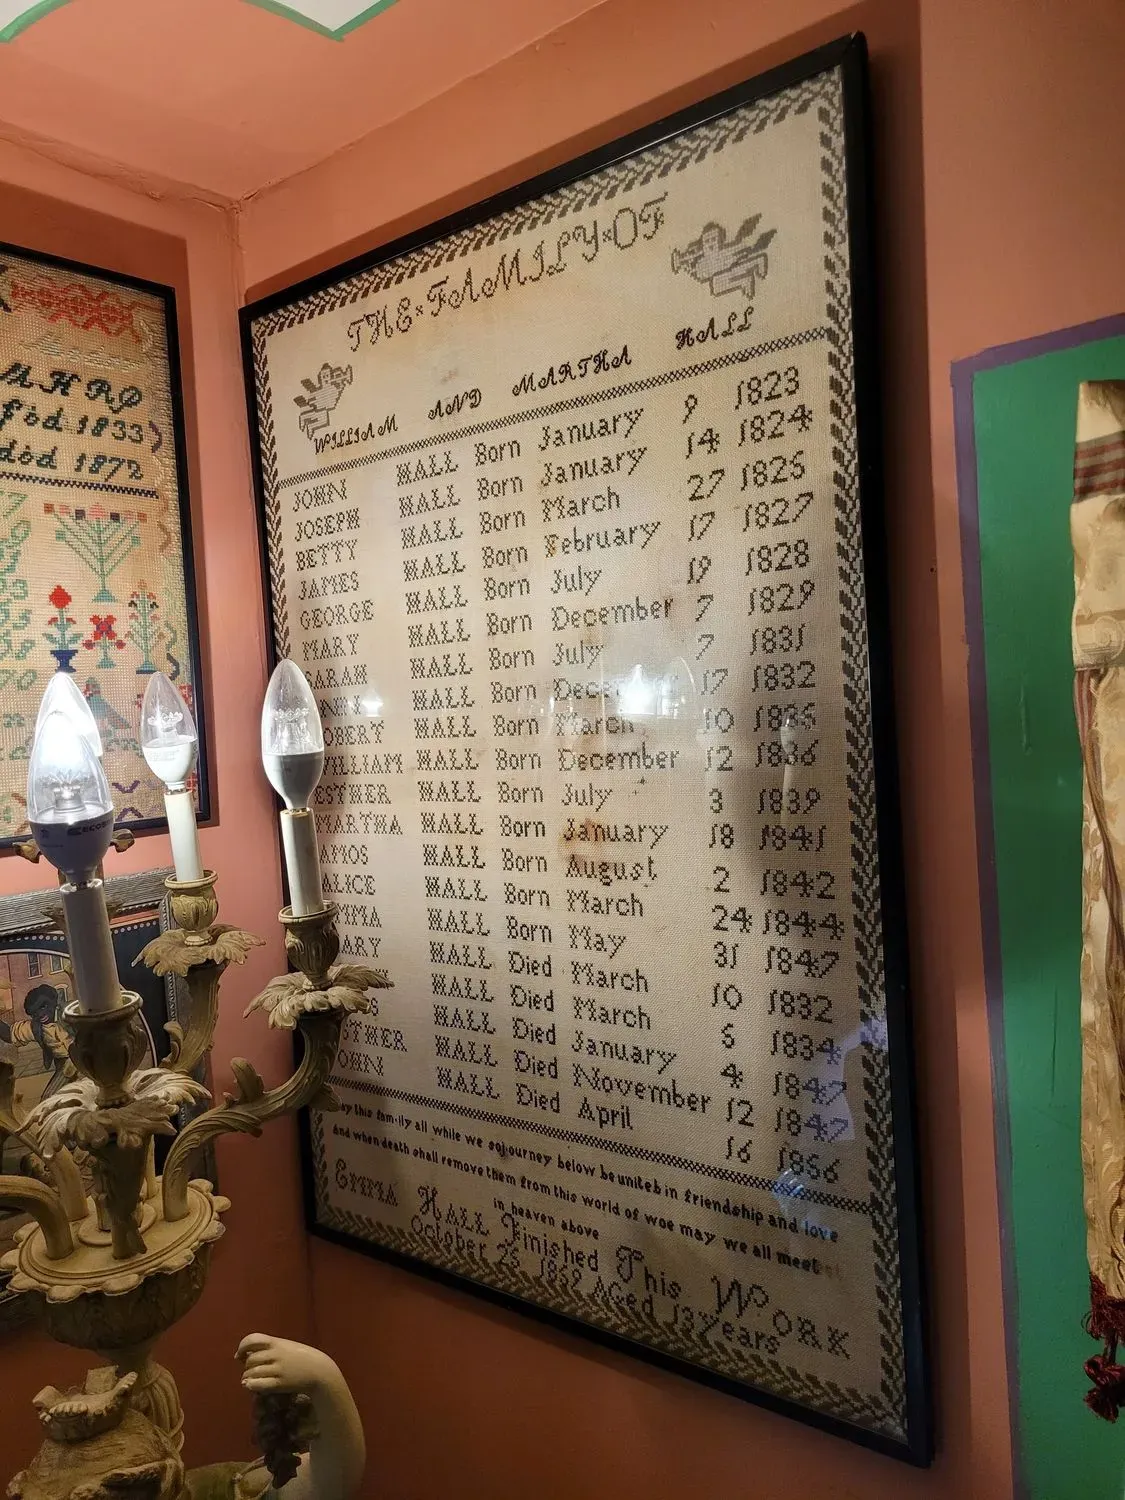 THE × FAMILY × OF
WILLIAM AND MARTHA HALL
JOHN HALL Born January 9 1823
JOSEPH HALL Born January 14 1824
BETTY HALL Born March 27 1825
JAMES HALL Born February 17 1827
GEORGE HALL Born July 19 1828
MARY HALL Born December 7 1829
SARAH HALL Born July 7 1831
NN HALL Born December 17 1832
OBERT HALL Born March 10 1835
WILLIAM HALL Born December 12 1836
ESTHER HALL Born July 3 1839
MARTHA HALL Born January 18 1841
AMOS HALL Born August 2 1842
ALICE HALL Born March 24 1844
MMA HALL Born May 31 1847
ARY HALL Died March 10 1832
HALL Died March 5 1834
S HALL Died January 4 1847
STHER HALL Died November 12 1847
OHN HALL Died April 16 1856
ay this family all while we sojourney below be united in friendship and love
And when death shall remove them from this world of woe may we all meet
in heaven above
EMMA HALL Finished This WORK
October 25 1859 Aged 13 Years
MHRP
föd 1833
död 1872